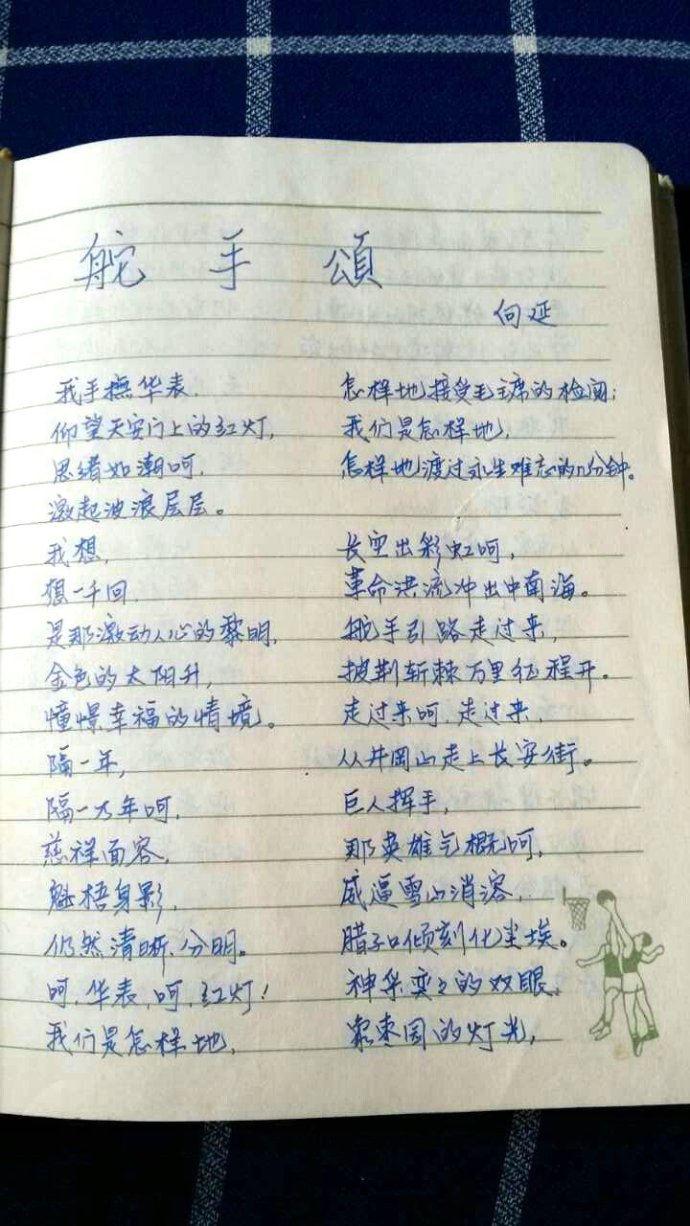 舵手頌
向延
我手撫华表,
仰望天安门上的红灯,
思绪如潮呵,
激起波浪层层。
我想,
想一千回,
是那激动人心的黎明,
金色的太阳升,
憧憬幸福的情境。
隔一年,
隔一大年呵,
慈祥面容,
魁梧身影,
仍然清晰、分明。
呵,华表,呵,红灯!
我们是怎样地,
怎样地接受毛主席的检阅;
我们是怎样地,
怎样地渡过永生难忘的几分钟。
长空出彩虹呵,
革命洪流冲出中南海。
舵手引路走过来,
披荆斩棘万里征程开。
走过来呵,走过来,
从井岡山走上长安街。
巨人挥手,
那英雄气概呵,
威逼雪山消溶,
腊子口倾刻化尘埃。
神采奕々的双眼,
枣园的灯光,